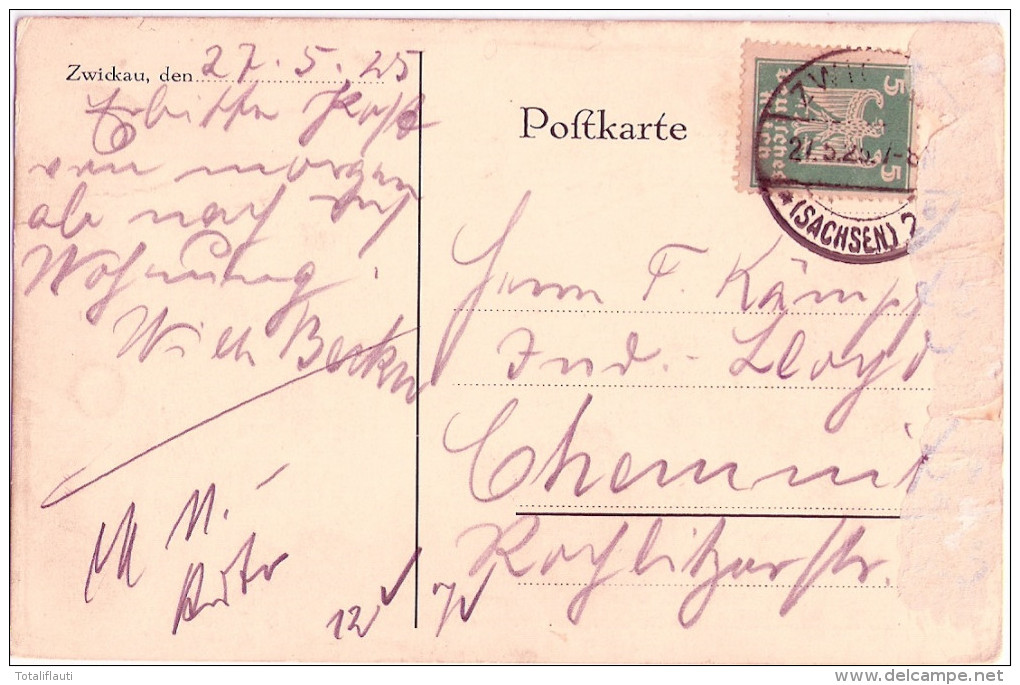 Zwickau, den 27.5.25
Erbitte Post
von morgen
ab nach
Wohnung.
Postkarte
5 5
Deutsches
Reich
27.5.25.7-8
* (SACHSEN) 2
Herrn F. Kämpf
Ind.-Lloyd
Chemni
Rochlitzerstr.
12
Totaliflauti
delcampe.net